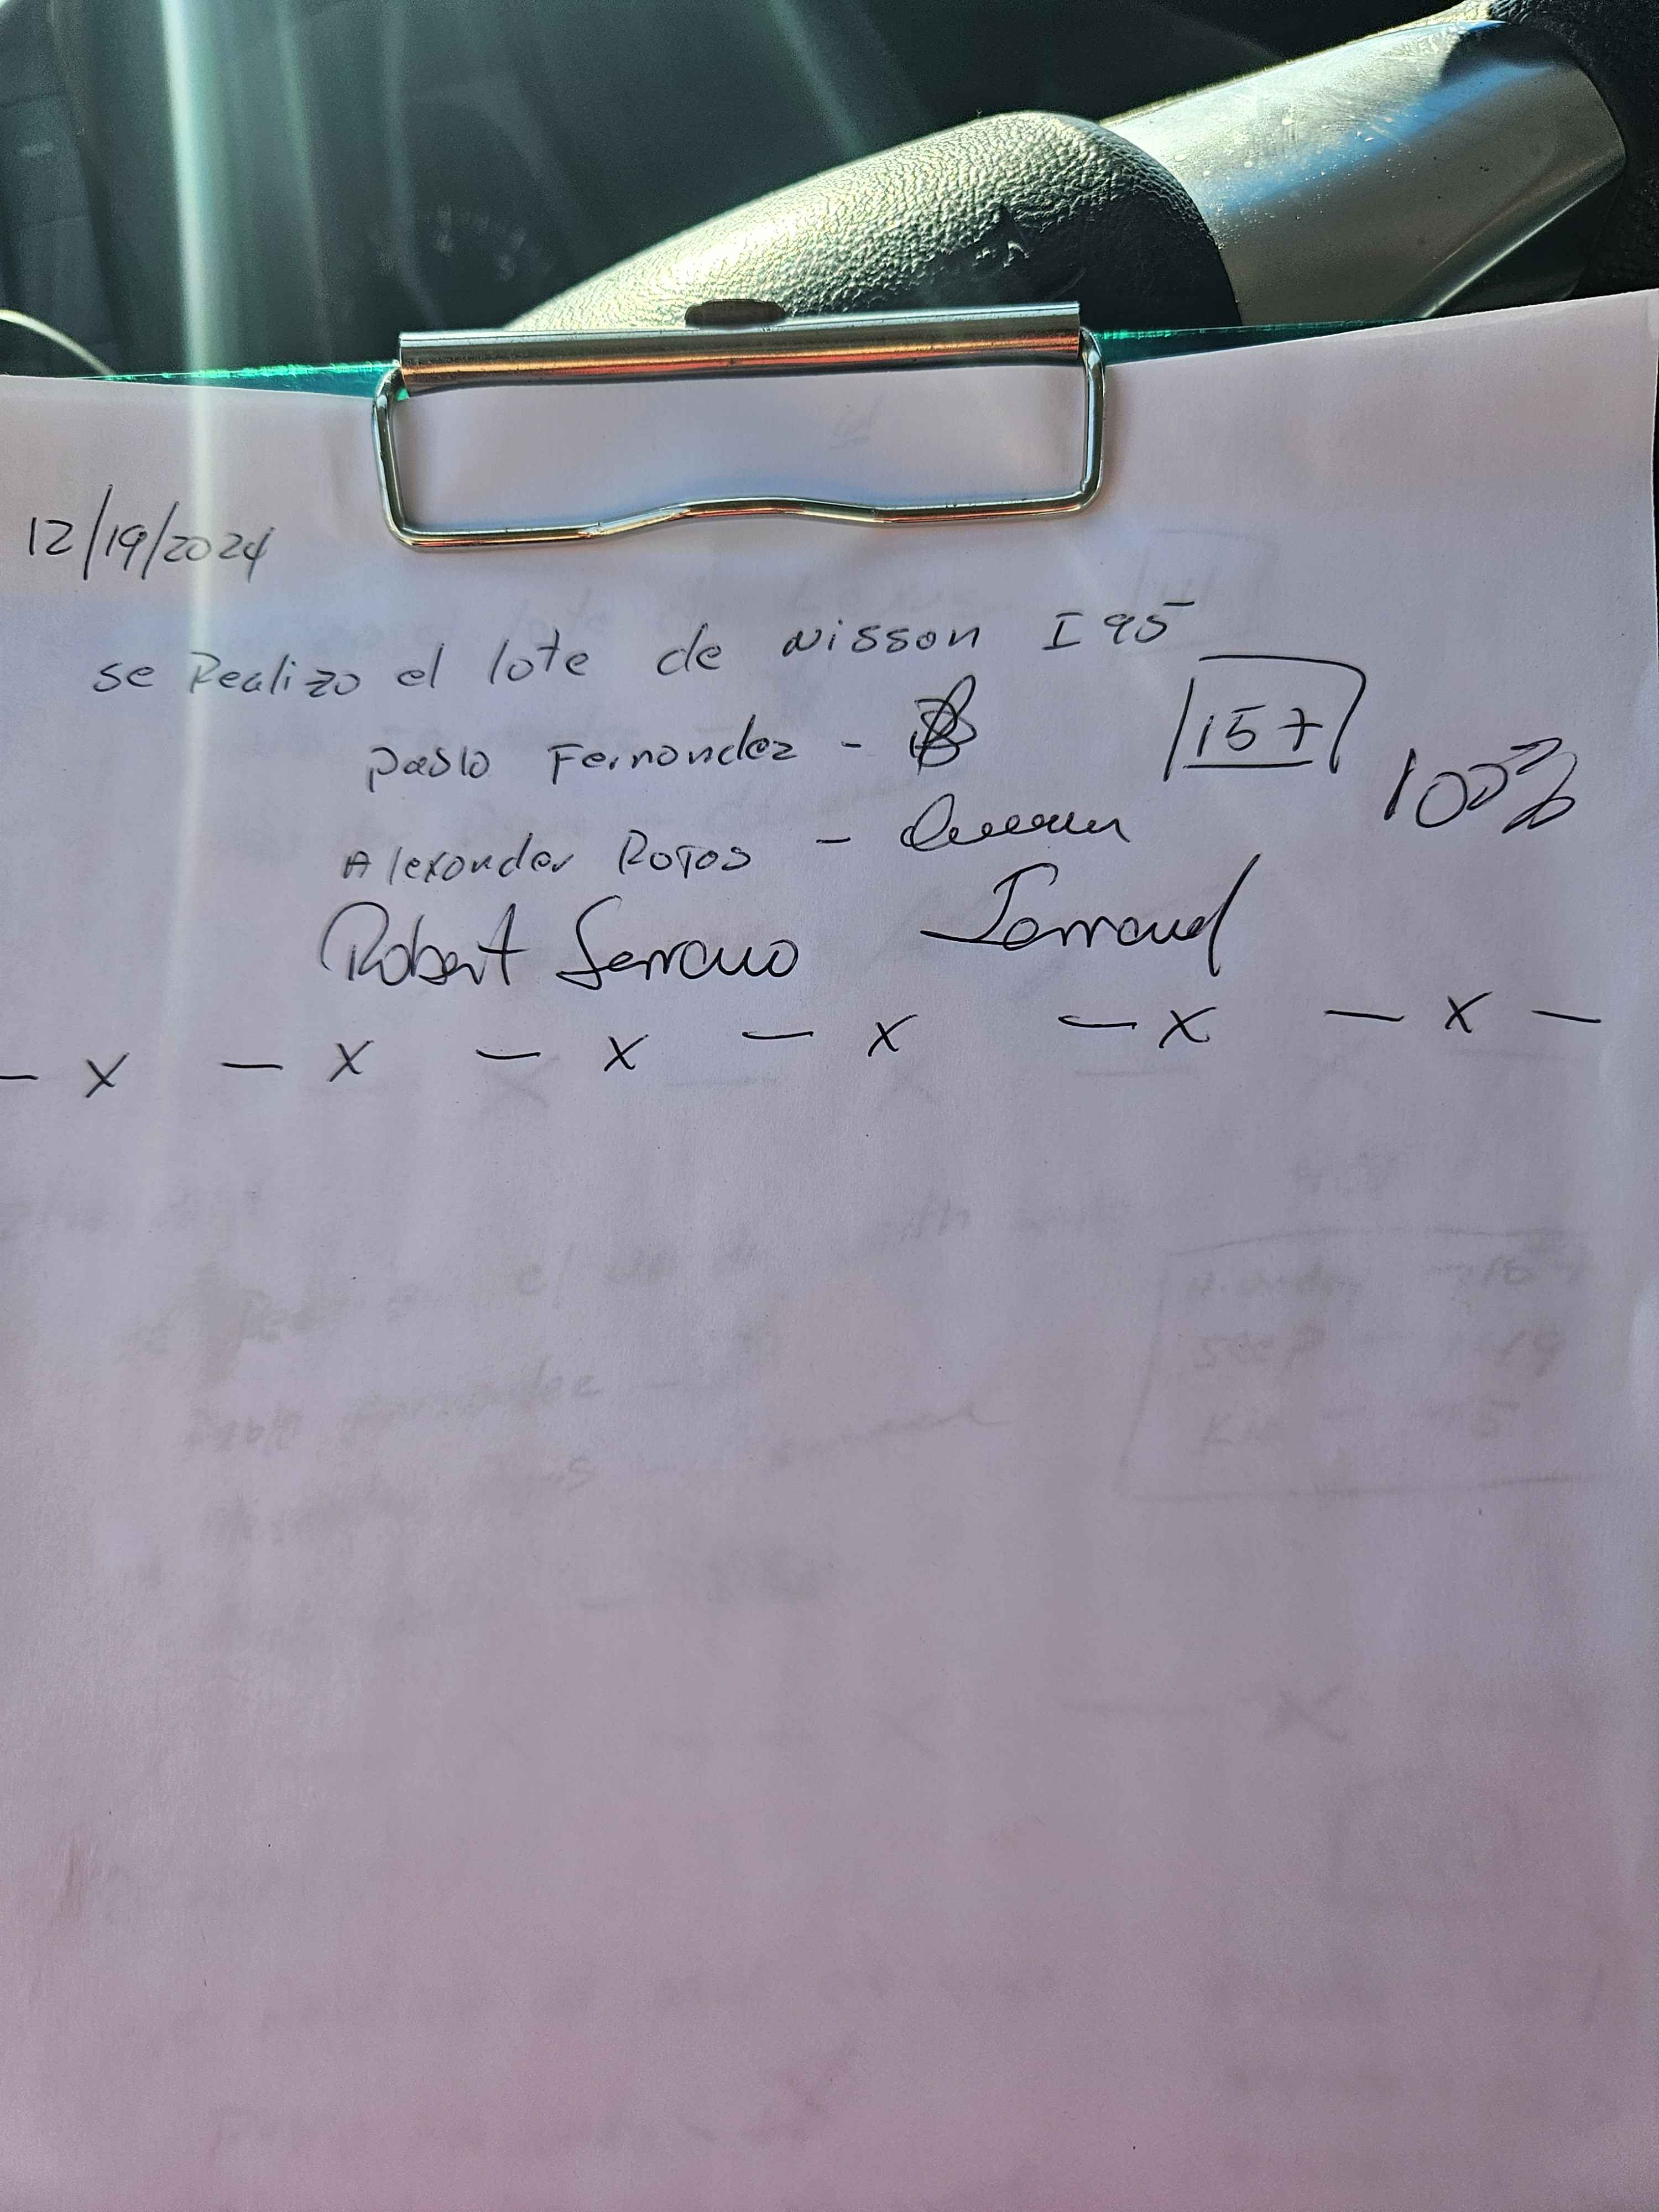 12/19/2024
se Realizo el lote de Nisson I95
Pablo Fernandez -
157
100%
Alexander Rojas -
Robert Serrano
- x - x - x - x - x - x -